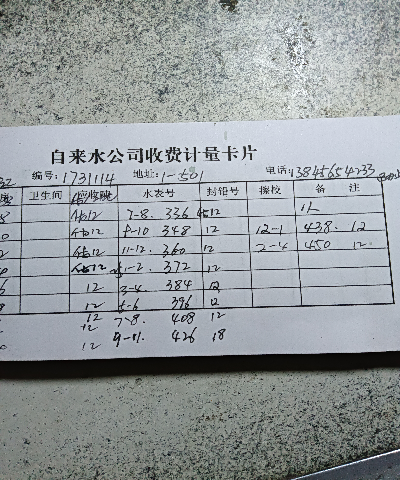 自来水公司收费计量卡片
编号:1731114 地址:1-501 电话:13845654233
卫生间 水表号 封铅号 换校 备 注
12 7-8. 336 12
12 9-10 348 12 12-1 438. 12
12 11-12. 360 12 2-4 450 12.
12 1-2. 372 12
12 3-4 384 12
12 5-6 396 12
12 7-8. 408 12
12 9-11. 426 18